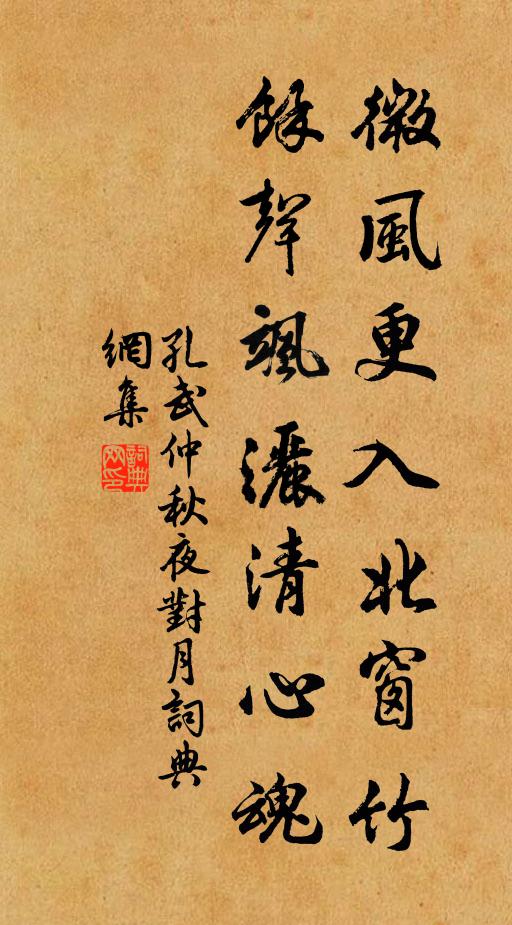 微風更入北窗竹
餘聲颯灑清心魂
孔武仲秋夜對月詞典
網集
詞典
网印